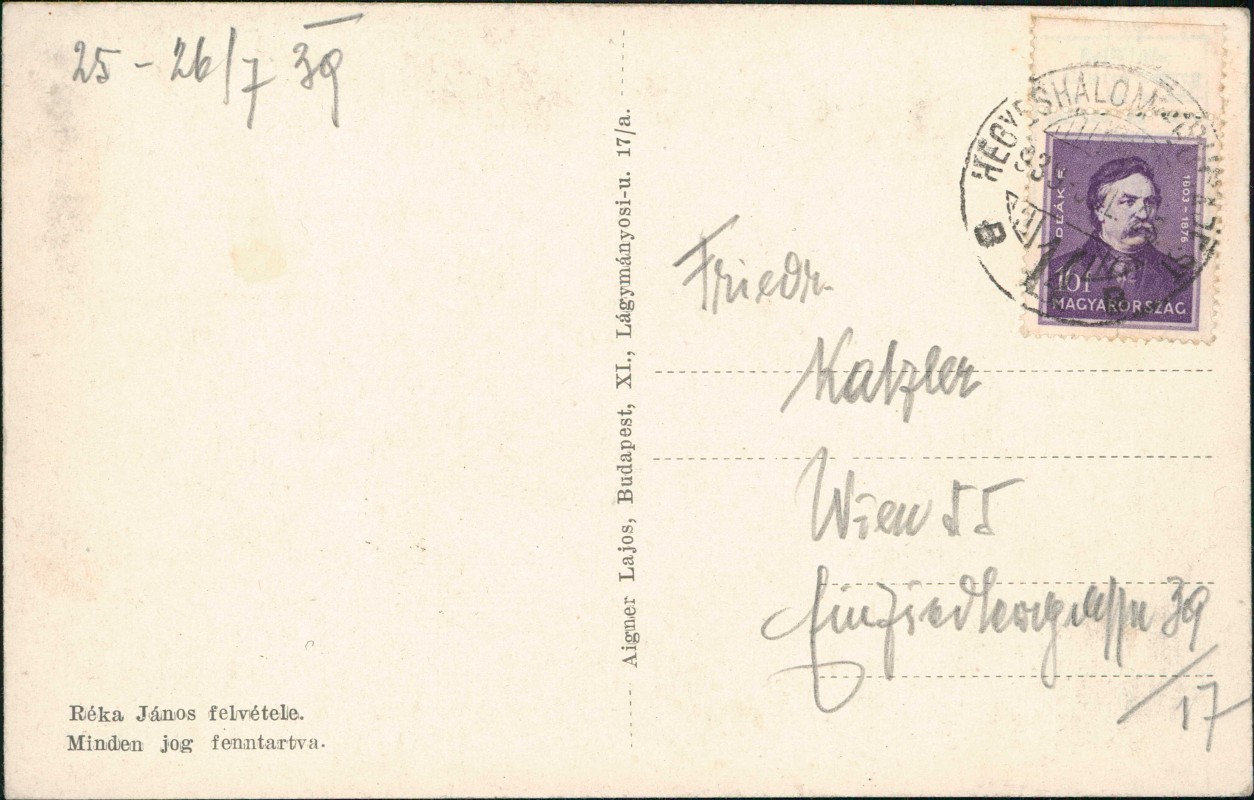 25 - 26/7 39
HEGYESHALOM
939
B
B
DEÁK F.
1803-1876
10f
MAGYARORSZÁG
Aigner Lajos, Budapest, XI., Lágymányosi-u. 17/a.
Friedr.
Katzler
Wien 55
Einsiedlergasse 39
/17
Réka János felvétele.
Minden jog fenntartva.